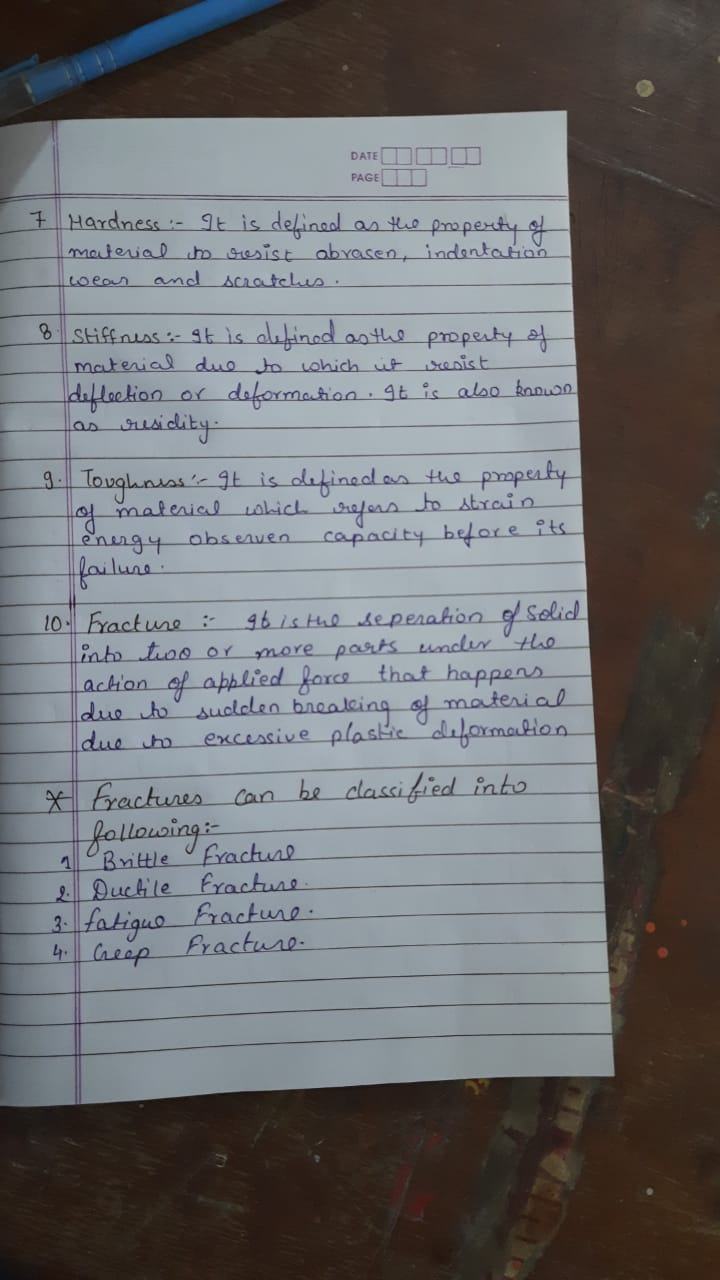 DATE
PAGE
7 Hardness :- It is defined as the property of
material to resist abrasen, indentation
wear and scratches.
8. Stiffness :- It is defined as the property of
material due to which it resist
deflection or deformation. It is also known
as residity.
9. Toughness :- It is defined as the property
of material which refers to strain
energy observen capacity before its
failure.
10. Fracture :- It is the seperation of solid
into two or more parts under the
action of applied force that happens
due to sudden breaking of material
due to excessive plastic deformation
* Fractures can be classified into
following:-
1 Brittle Fracture
2. Ductile Fracture.
3. fatigue Fracture.
4. Creep Fracture.